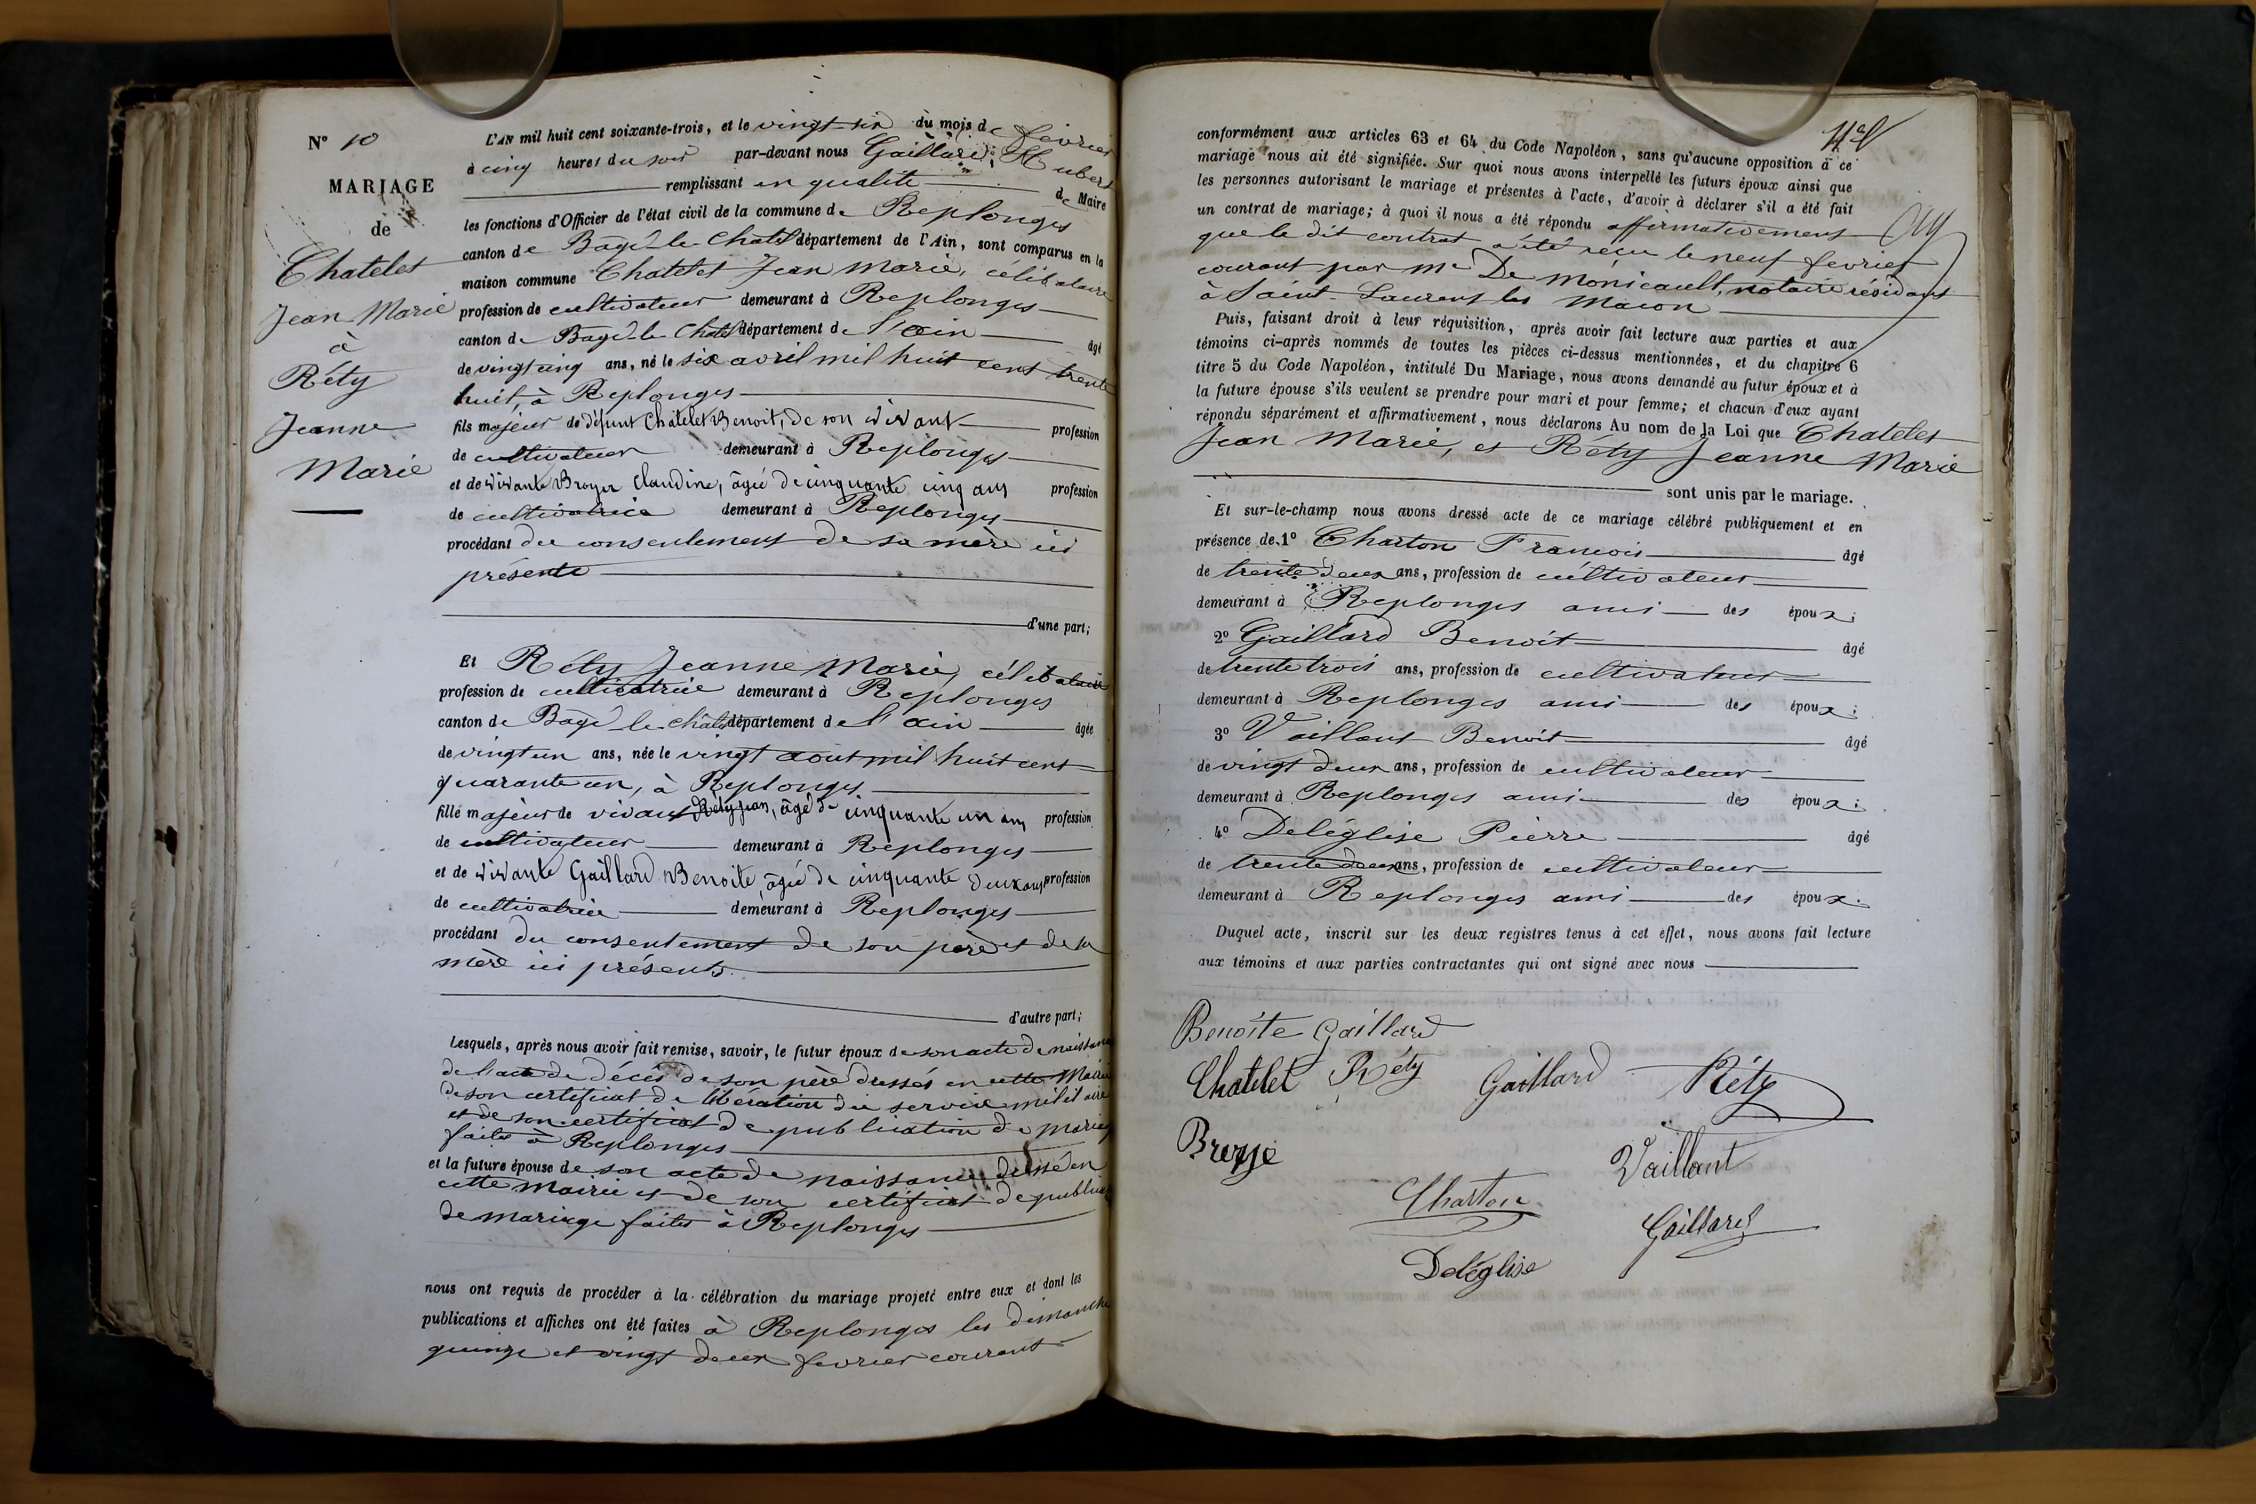 N° 10
MARIAGE
de
Chatelet
Jean Marie
à
Réty
Jeanne
Marie
L'AN mil huit cent soixante-trois, et le vingt six du mois de février
à cinq heures du soir par-devant nous Gaillard, Hubert
remplissant en qualité de Maire
les fonctions d'Officier de l'état civil de la commune de Replonges
canton de Bagé-le-Chatel département de l'Ain, sont comparus en la
maison commune Chatelet Jean Marie, célibataire
profession de cultivateur demeurant à Replonges
canton de Bagé-le-Chatel département de l'ain âgé
de vingt cinq ans, né le six avril mil huit cent trente
huit, à Replonges
fils majeur de défunt Chatelet Benoit, de son vivant profession
de cultivateur demeurant à Replonges
et de vivante Broyer Claudine, âgée de cinquante cinq ans profession
de cultivatrice demeurant à Replonges
procédant du consentement de sa mère ici
présente
d'une part;
Et Réty Jeanne Marie, célibataire
profession de cultivatrice demeurant à Replonges
canton de Bagé-le-châtel département de l'ain âgée
de vingt un ans, née le vingt aout mil huit cent
quarante un, à Replonges
fille majeure de vivant Réty Jean, âgé de cinquante un ans profession
de cultivateur demeurant à Replonges
et de vivante Gaillard Benoite, âgée de cinquante deux ans profession
de cultivatrice demeurant à Replonges
procédant du consentement de son père et de sa
mère ici présents.
d'autre part;
Lesquels, après nous avoir fait remise, savoir, le futur époux de son acte de naissance
de l'acte de décès de son père dressés en cette Mairie
de son certificat de libération du service militaire
et de son certificat de publication de mariage
faites à Replonges
et la future épouse de son acte de naissance dressé en
cette mairie et de son certificat de publication
de mariage faites à Replonges
nous ont requis de procéder à la célébration du mariage projeté entre eux et dont les
publications et affiches ont été faites à Replonges les dimanches
quinze et vingt deux fevrier courant
conformément aux articles 63 et 64 du Code Napoléon, sans qu'aucune opposition à ce
mariage nous ait été signifiée. Sur quoi nous avons interpellé les futurs époux ainsi que
les personnes autorisant le mariage et présentes à l'acte, d'avoir à déclarer s'il a été fait
un contrat de mariage; à quoi il nous a été répondu affirmativement
que le dit contrat a été reçu le neuf fevrier
courant par Me De Monicault, notaire résidant
à Saint-Laurent les Macon
Puis, faisant droit à leur réquisition, après avoir fait lecture aux parties et aux
témoins ci-après nommés de toutes les pièces ci-dessus mentionnées, et du chapitre 6
titre 5 du Code Napoléon, intitulé Du Mariage, nous avons demandé au futur époux et à
la future épouse s'ils veulent se prendre pour mari et pour femme; et chacun d'eux ayant
répondu séparément et affirmativement, nous déclarons Au nom de la Loi que Chatelet
Jean Marie, et Réty Jeanne Marie
sont unis par le mariage.
Et sur-le-champ nous avons dressé acte de ce mariage célébré publiquement et en
présence de 1° Charton Francois âgé
de trente deux ans, profession de cultivateur
demeurant à Replonges ami des époux;
2° Gaillard Benoit âgé
de trente trois ans, profession de cultivateur
demeurant à Replonges ami des époux;
3° Vaillant Benoit âgé
de vingt deux ans, profession de cultivateur
demeurant à Replonges ami des époux;
4° Deléglise Pierre âgé
de trente deux ans, profession de cultivateur
demeurant à Replonges ami des époux.
Duquel acte, inscrit sur les deux registres tenus à cet effet, nous avons fait lecture
aux témoins et aux parties contractantes qui ont signé avec nous
Benoîte Gaillard
Chatelet Réty Gaillard Réty
Vaillant
Charton
Gaillard
Deléglise